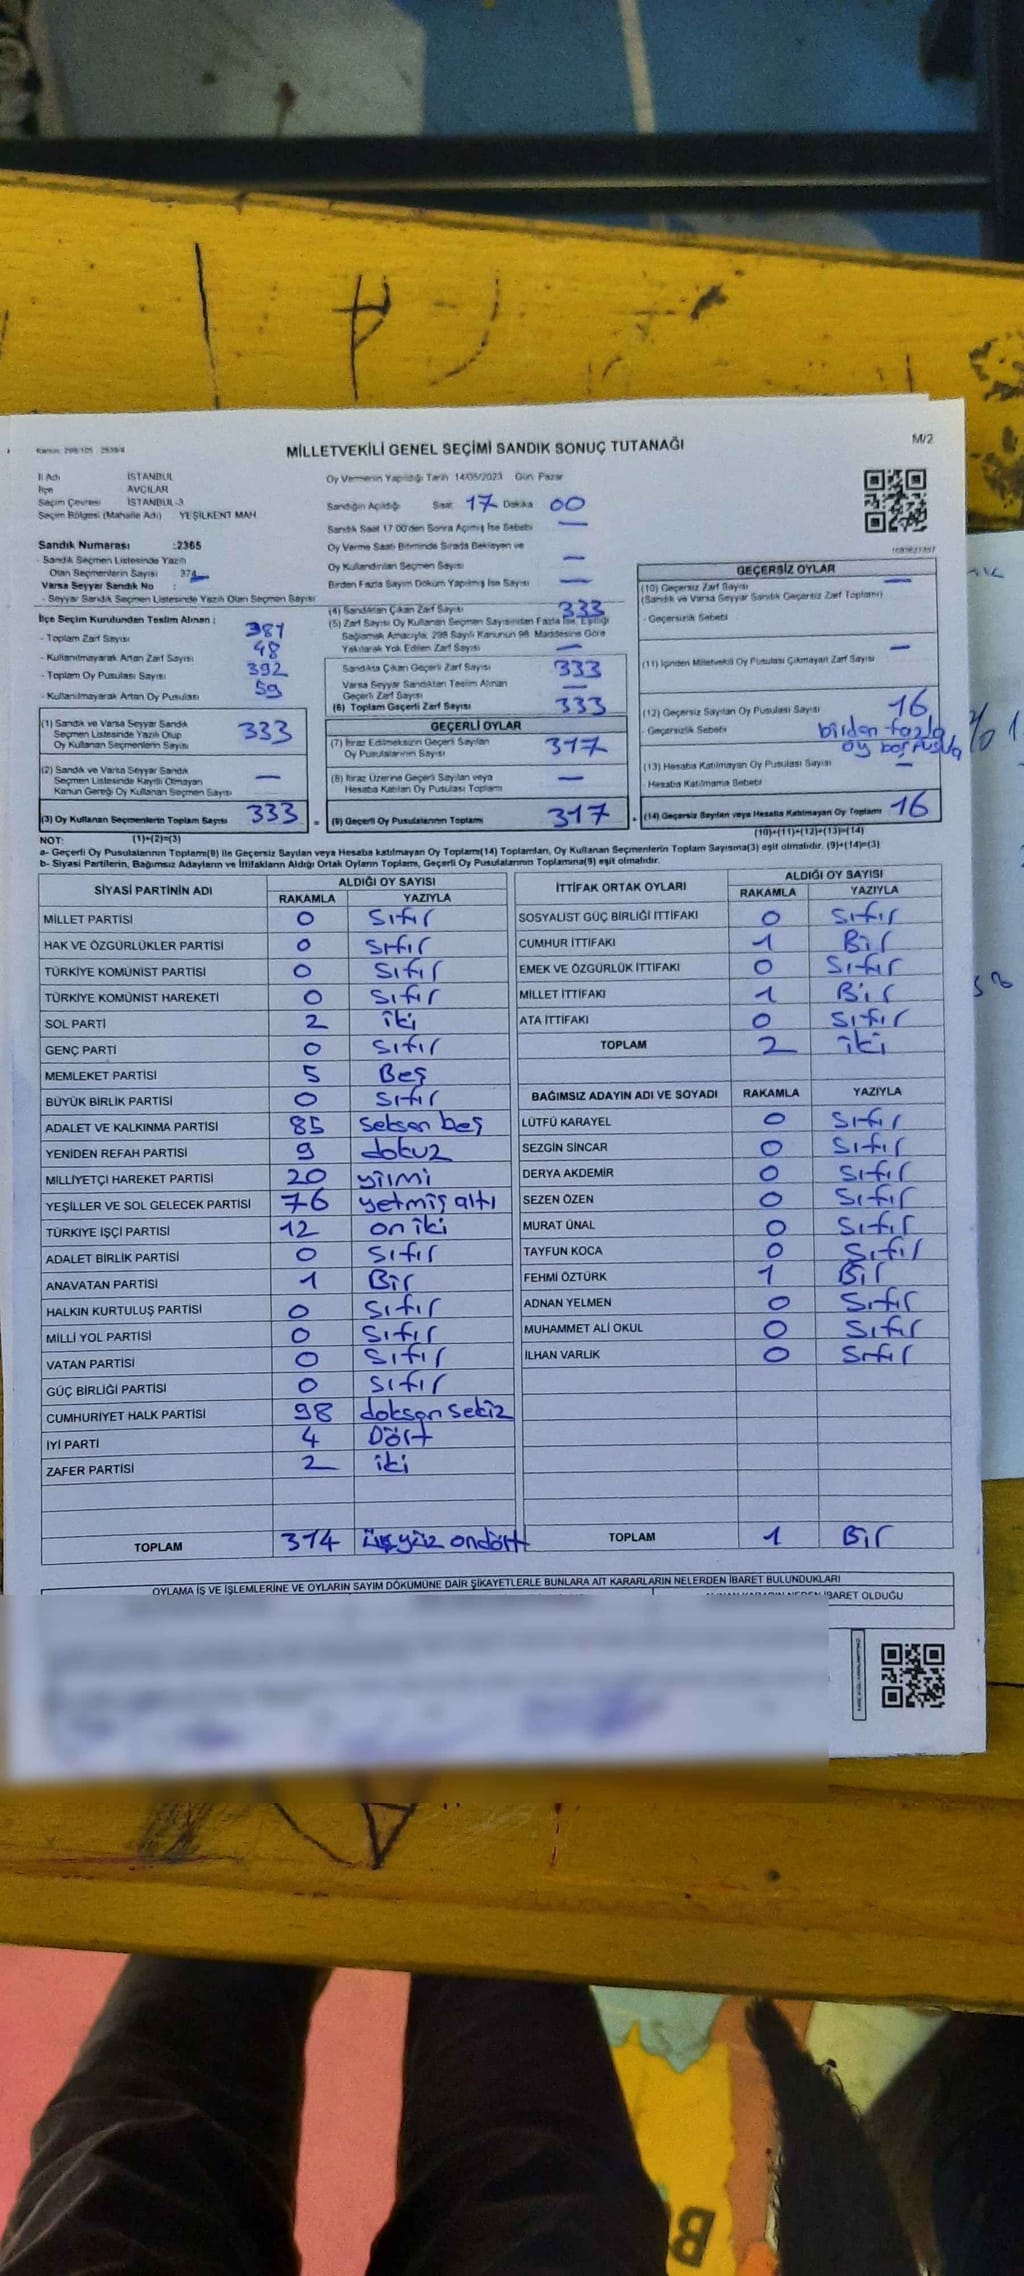 Kanun: 298/105 2839/4
MİLLETVEKİLİ GENEL SEÇİMİ SANDIK SONUÇ TUTANAĞI
M/2
İl Adı İSTANBUL
İlçe AVCILAR
Seçim Çevresi İSTANBUL-3
Seçim Bölgesi (Mahalle Adı) YEŞİLKENT MAH
Sandık Numarası :2365
- Sandık Seçmen Listesinde Yazılı
Olan Seçmenlerin Sayısı 374
Varsa Seyyar Sandık No :
- Seyyar Sandık Seçmen Listesinde Yazılı Olan Seçmen Sayısı
İlçe Seçim Kurulundan Teslim Alınan :
- Toplam Zarf Sayısı 381
- Kullanılmayarak Artan Zarf Sayısı 48
- Toplam Oy Pusulası Sayısı 392
- Kullanılmayarak Artan Oy Pusulası 59
(1) Sandık ve Varsa Seyyar Sandık
Seçmen Listesinde Yazılı Olup
Oy Kullanan Seçmenlerin Sayısı 333
(2) Sandık ve Varsa Seyyar Sandık
Seçmen Listesinde Kayıtlı Olmayan
Kanun Gereği Oy Kullanan Seçmen Sayısı —
(3) Oy Kullanan Seçmenlerin Toplam Sayısı 333 =
Oy Vermenin Yapıldığı Tarih 14/05/2023 Gün: Pazar
Sandığın Açıldığı Saat 17 Dakika 00
Sandık Saat 17.00'den Sonra Açılmış İse Sebebi —
Oy Verme Saati Bitiminde Sırada Bekleyen ve
Oy Kullandırılan Seçmen Sayısı —
Birden Fazla Sayım Döküm Yapılmış İse Sayısı —
(4) Sandıktan Çıkan Zarf Sayısı 333
(5) Zarf Sayısı Oy Kullanan Seçmen Sayısından Fazla İse, Eşitliği
Sağlamak Amacıyla, 298 Sayılı Kanunun 98. Maddesine Göre
Yakılarak Yok Edilen Zarf Sayısı —
Sandıkta Çıkan Geçerli Zarf Sayısı 333
Varsa Seyyar Sandıktan Teslim Alınan
Geçerli Zarf Sayısı —
(6) Toplam Geçerli Zarf Sayısı 333
GEÇERLİ OYLAR
(7) İtiraz Edilmeksizin Geçerli Sayılan
Oy Pusulalarının Sayısı 317
(8) İtiraz Üzerine Geçerli Sayılan veya
Hesaba Katılan Oy Pusulası Toplamı —
(9) Geçerli Oy Pusulalarının Toplamı 317 +
GEÇERSİZ OYLAR
(10) Geçersiz Zarf Sayısı —
(Sandık ve Varsa Seyyar Sandık Geçersiz Zarf Toplamı)
- Geçersizlik Sebebi
(11) İçinden Milletvekili Oy Pusulası Çıkmayan Zarf Sayısı —
(12) Geçersiz Sayılan Oy Pusulası Sayısı 16
- Geçersizlik Sebebi birden fazla
oy boş pusula
(13) Hesaba Katılmayan Oy Pusulası Sayısı —
Hesaba Katılmama Sebebi
(14) Geçersiz Sayılan veya Hesaba Katılmayan Oy Toplamı 16
NOT: (1)+(2)=(3) (10)+(11)+(12)+(13)=(14)
a- Geçerli Oy Pusulalarının Toplamı(9) ile Geçersiz Sayılan veya Hesaba katılmayan Oy Toplamı(14) Toplamları, Oy Kullanan Seçmenlerin Toplam Sayısına(3) eşit olmalıdır. (9)+(14)=(3)
b- Siyasi Partilerin, Bağımsız Adayların ve İttifakların Aldığı Ortak Oyların Toplamı, Geçerli Oy Pusulalarının Toplamına(9) eşit olmalıdır.
SİYASİ PARTİNİN ADI ALDIĞI OY SAYISI
RAKAMLA YAZIYLA
MİLLET PARTİSİ 0 Sıfır
HAK VE ÖZGÜRLÜKLER PARTİSİ 0 Sıfır
TÜRKİYE KOMÜNİST PARTİSİ 0 Sıfır
TÜRKİYE KOMÜNİST HAREKETİ 0 Sıfır
SOL PARTİ 2 iki
GENÇ PARTİ 0 Sıfır
MEMLEKET PARTİSİ 5 Beş
BÜYÜK BİRLİK PARTİSİ 0 Sıfır
ADALET VE KALKINMA PARTİSİ 85 seksen beş
YENİDEN REFAH PARTİSİ 9 dokuz
MİLLİYETÇİ HAREKET PARTİSİ 20 yirmi
YEŞİLLER VE SOL GELECEK PARTİSİ 76 yetmiş altı
TÜRKİYE İŞÇİ PARTİSİ 12 on iki
ADALET BİRLİK PARTİSİ 0 Sıfır
ANAVATAN PARTİSİ 1 Bir
HALKIN KURTULUŞ PARTİSİ 0 Sıfır
MİLLİ YOL PARTİSİ 0 Sıfır
VATAN PARTİSİ 0 Sıfır
GÜÇ BİRLİĞİ PARTİSİ 0 Sıfır
CUMHURİYET HALK PARTİSİ 98 doksan sekiz
İYİ PARTİ 4 Dört
ZAFER PARTİSİ 2 iki
TOPLAM 314 üçyüz ondört
İTTİFAK ORTAK OYLARI ALDIĞI OY SAYISI
RAKAMLA YAZIYLA
SOSYALİST GÜÇ BİRLİĞİ İTTİFAKI 0 Sıfır
CUMHUR İTTİFAKI 1 Bir
EMEK VE ÖZGÜRLÜK İTTİFAKI 0 Sıfır
MİLLET İTTİFAKI 1 Bir
ATA İTTİFAKI 0 Sıfır
TOPLAM 2 iki
BAĞIMSIZ ADAYIN ADI VE SOYADI RAKAMLA YAZIYLA
LÜTFÜ KARAYEL 0 Sıfır
SEZGİN SİNCAR 0 Sıfır
DERYA AKDEMİR 0 Sıfır
SEZEN ÖZEN 0 Sıfır
MURAT ÜNAL 0 Sıfır
TAYFUN KOCA 0 Sıfır
FEHMİ ÖZTÜRK 1 Bir
ADNAN YELMEN 0 Sıfır
MUHAMMET ALİ OKUL 0 Sıfır
İLHAN VARLIK 0 Sıfır
TOPLAM 1 Bir
OYLAMA İŞ VE İŞLEMLERİNE VE OYLARIN SAYIM DÖKÜMÜNE DAİR ŞİKAYETLERLE BUNLARA AİT KARARLARIN NELERDEN İBARET BULUNDUKLARI
İBARET OLDUĞU